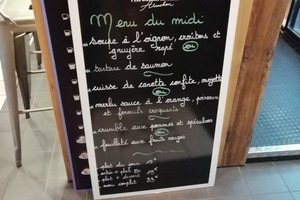 Menu du midi
Soupe à l'oignon, croûtons et
gruyère rapé
ou
tartare de saumon
cuisse de canette confite, mojette
ou
merlu sauce à l'orange, poireaux
et fenouils croquants
crumble aux pommes et spéculoos
ou
feuilleté aux fruits rouges
plat du jour
entrée + plat ou
plat + dessert 19€
menu complet 23€